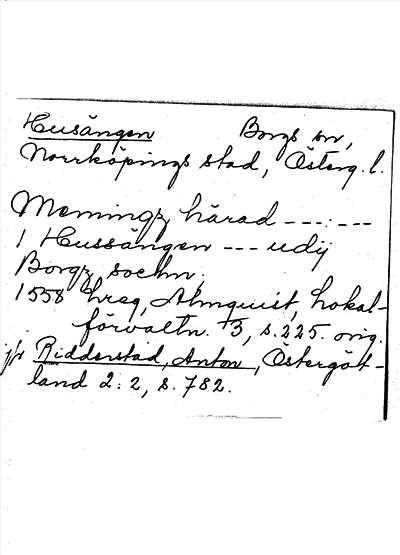 Husängen Borgs sn,
Norrköpings stad, Österg. l.
Memingz härad ---:---
1 Hussängen --- udij
Borgz sochn,
1558 hreg, Almquist, Lokal-
förvaltn. 3, s. 225. orig.
jfr Ridderstad, Anton, Östergöt-
land 2:2, s. 782.